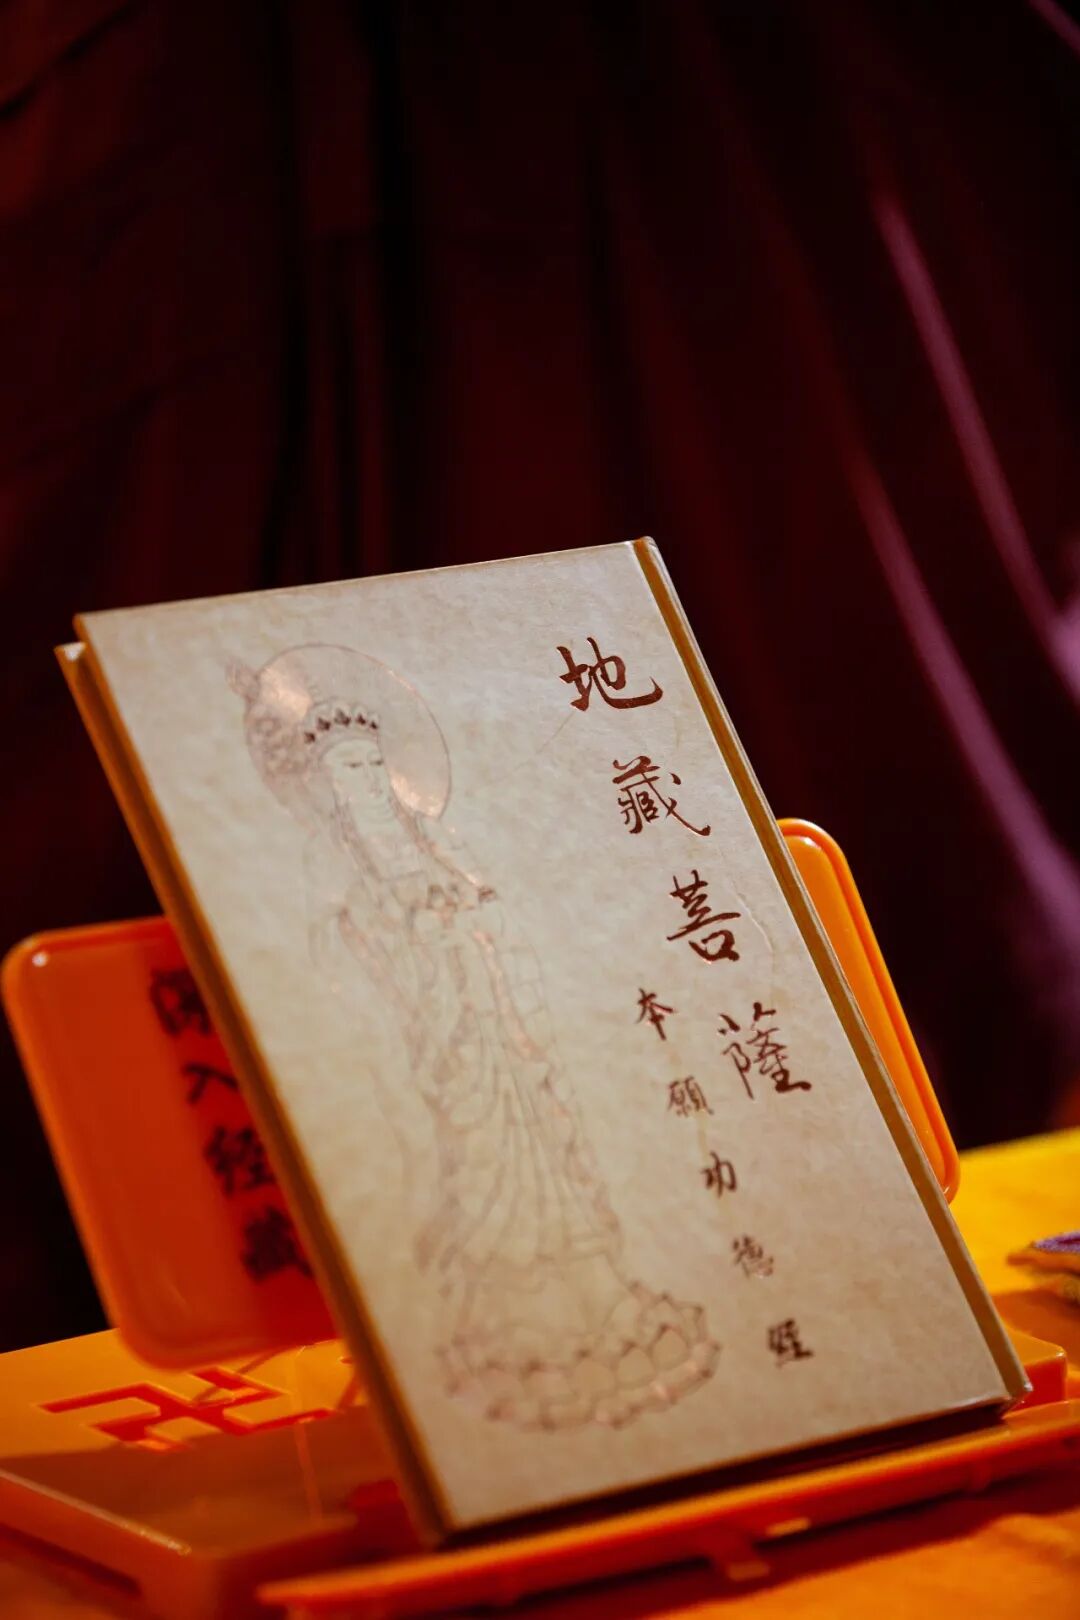 地藏菩薩
本願功德經
入经藏